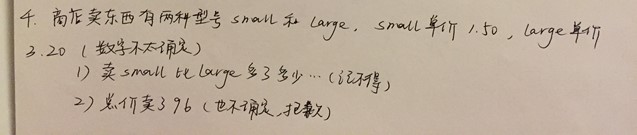 4. 商店卖东西有两种型号 small 和 large. small 单价 1.50, large 单价
3.20 (数字不太确定)
1) 卖 small 比 large 多了多少…(记不得)
2) 总价卖了96 (也不确定,抱歉)